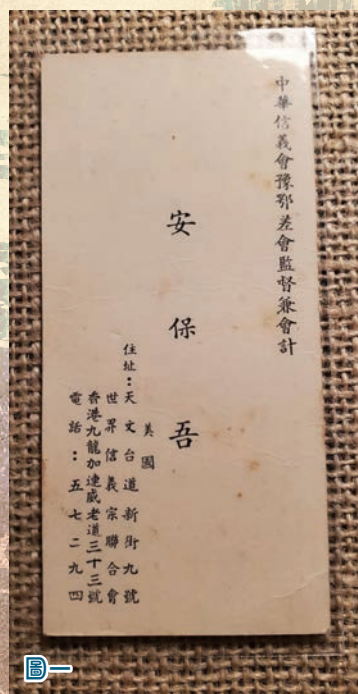 中華信義會豫鄂差會監督兼會計
安保吾
美國
住址：天文台道新街九號
世界信義宗聯合會
香港九龍加連威老道三十三號
電話：五七二九四
圖一